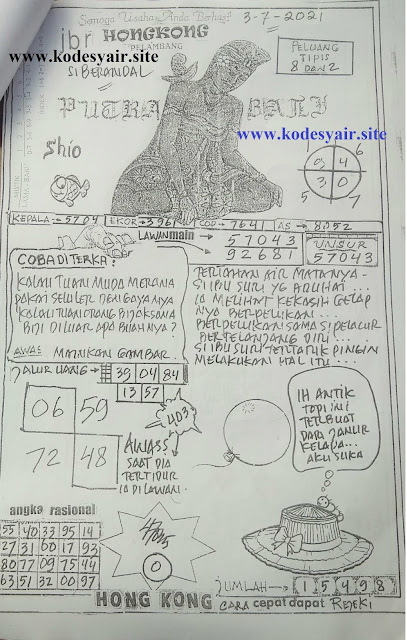 Semoga Usaha Anda Berhasil
3-7-2021
www.kodesyair.site
jbr HONGKONG
PELAMBANG
SI BERANDAL
PELUANG
TIPIS
8 DAN 2
PUTRA BALI
www.kodesyair.site
Shio
6
9 4
3 0
5 7
KEPALA → 5704
EKOR → 3961
COP → 7641
AS → 8052
LAWAN main
57043
92681
UNSUR
57043
COBA DITERKA:
KALAU TUAN MUDA MERANA
PAKAI SELULER DENGGAYANYA
KALAU TUAN ORANG BIJAKSANA
BIJI DILUAR APA BUAHNYA?
AWAS MAINKAN GAMBAR
TERTAHAN AIR MATANYA -
SI IBU SURI YG ADUHAI ...
IA MELIHAT KEKASIH GELAP
NYA BERPELUKAN ...
BERPELUKAN SAMA SI PELACUR
BERTELANJANG DIRI ...
SI IBU SURI TERTARIK PINGIN
MELAKUKAN HAL ITU ...
JALUR UANG →
39 04 84
13 57
403
06 59
72 48
AWASS
SAAT DIA
TERTIDUR
IA DILAWAN.
IH ANTIK
TOPI INI
TERBUAT
DARI JANUR
KELAPA...
AKU SUKA
angka rasional
55 40 33 95 14
27 31 00 17 93
80 77 09 75 44
63 51 32 00 97
0
JUMLAH → 1 5 4 9 8
HONG KONG
CARA cepat dapat REJEKI